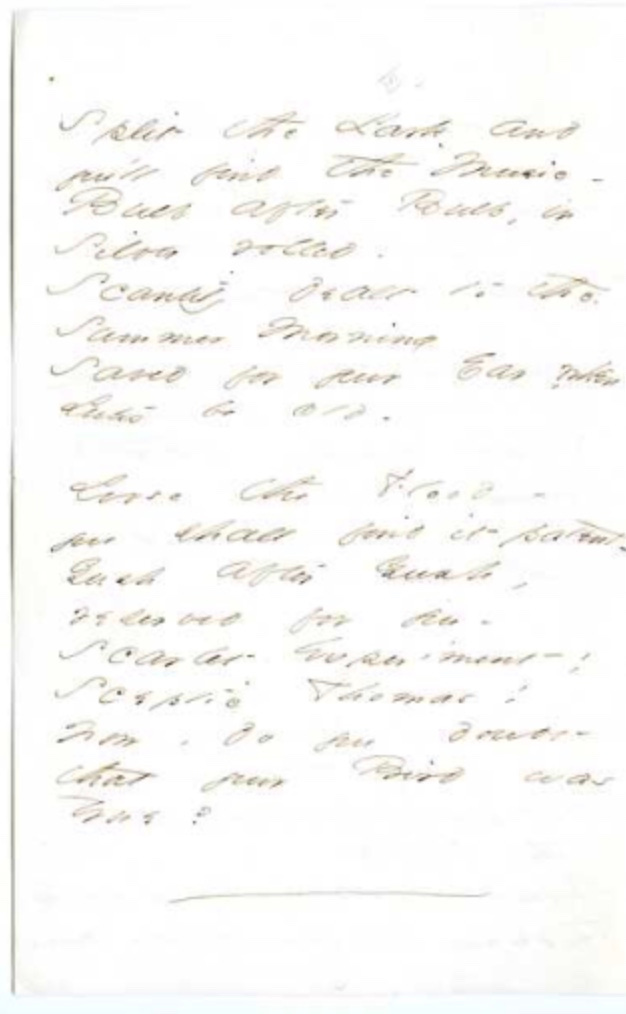 Split the Lark and
you'll find the Music -
Bulb after Bulb, in
Silver rolled.
Scantily dealt to the
Summer Morning
Saved for your Ear when
Lutes be old -
Loose the Flood -
you shall find it patent -
Gush after Gush,
reserved for you -
Scarlet Experiment!
Sceptic Thomas!
Now, do you doubt
that your Bird was
true?